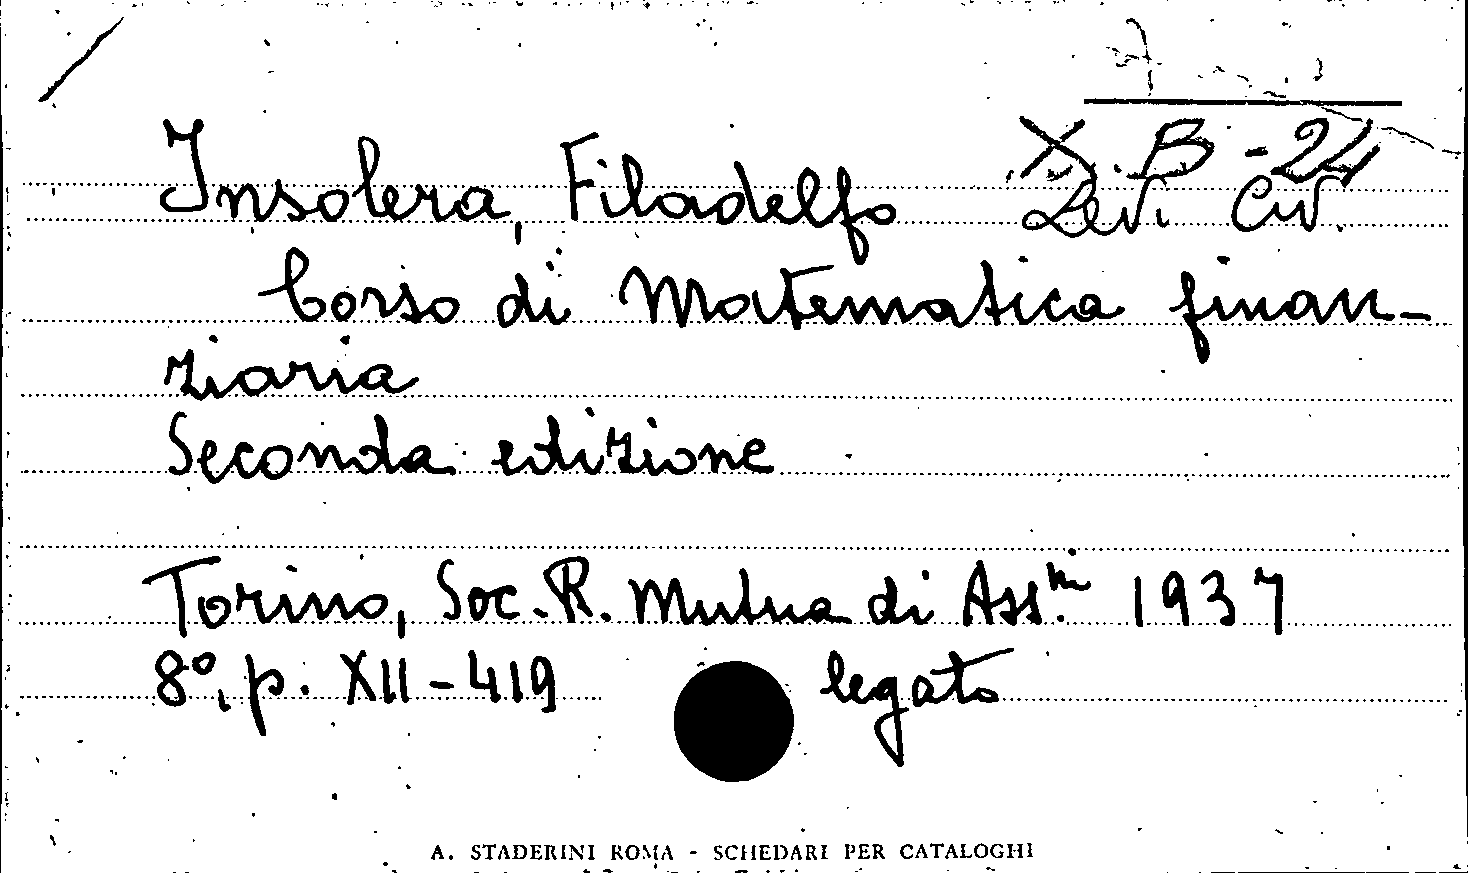 X. B - 24
Insolera, Filadelfo Levi Civ.
Corso di Matematica finan-
ziaria
Seconda edizione
Torino, Soc. R. Mutua di Ass.ni 1937
8°, p. XII - 419 legato
A. STADERINI ROMA - SCHEDARI PER CATALOGHI